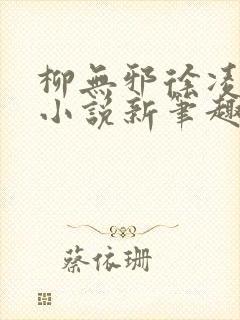 柳無邪徐凌
小說新筆趣
蔡依珊